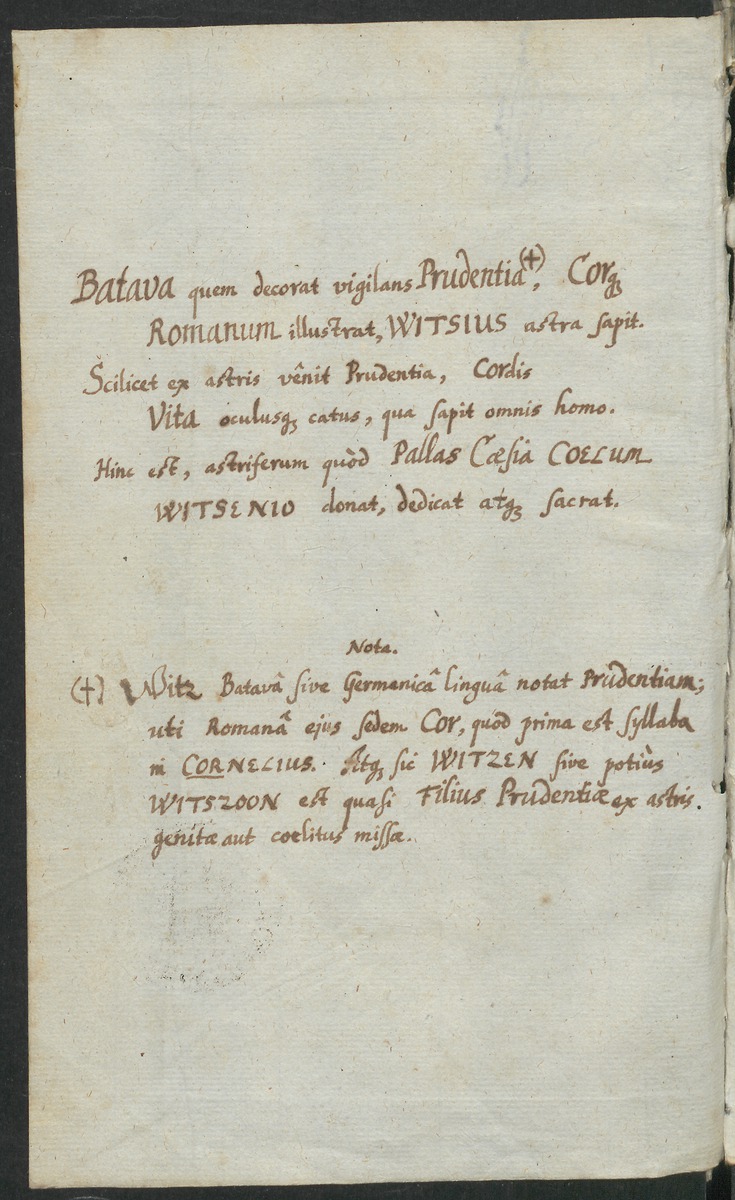 Batava quem decorat vigilans Prudentia(+), Corq;
Romanum illustrat, WITSIUS astra sapit.
Scilicet ex astris vênit Prudentia, Cordis
Vita oculusq; catus, qua sapit omnis homo.
Hinc est, astriferum quòd Pallas Cæsia COELUM
WITSENIO donat, dedicat atq; sacrat.
Nota.
(+) Witz Batavâ sive Germanicâ linguâ notat Prudentiam;
uti Romanâ ejus sedem Cor, quod prima est syllaba
in CORNELIUS. Atq; sic WITZEN sive potiùs
WITSZOON est quasi Filius Prudentiæ ex astris
genitæ aut coelitus missæ.